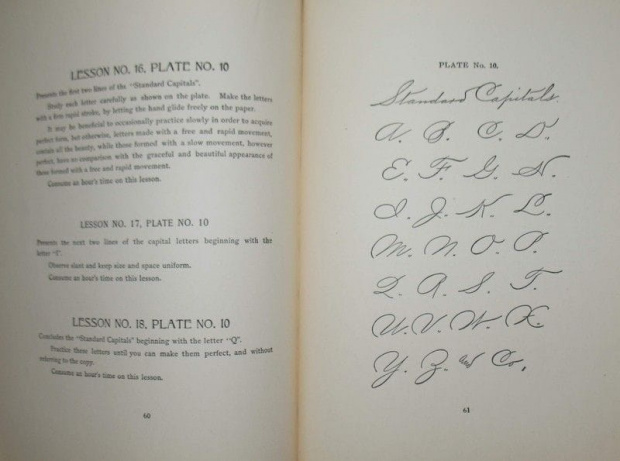 LESSON NO. 16, PLATE NO. 10
Presents the first two lines of the "Standard Capitals".
Study each letter carefully as shown on the plate. Make the letters
with a free rapid stroke, by letting the hand glide freely on the paper.
It may be beneficial to occasionally practice slowly in order to acquire
perfect form, but otherwise, letters made with a free and rapid movement,
contain all the beauty, while those formed with a slow movement, however
perfect, have no comparison with the graceful and beautiful appearance of
those formed with a free and rapid movement.
Consume an hour's time on this lesson.
LESSON NO. 17, PLATE NO. 10
Presents the next two lines of the capital letters beginning with the
letter "I".
Observe slant and keep size and space uniform.
Consume an hour's time on this lesson.
LESSON NO. 18, PLATE NO. 10
Concludes the "Standard Capitals" beginning with the letter "Q".
Practice these letters until you can make them perfect, and without
referring to the copy.
Consume an hour's time on this lesson.
60
PLATE No. 10.
Standard Capitals
A. B. C. D.
E. F. G. H.
I. J. K. L.
M. N. O. P.
Q. R. S. T.
U. V. W. X.
Y. Z. and Co.
61